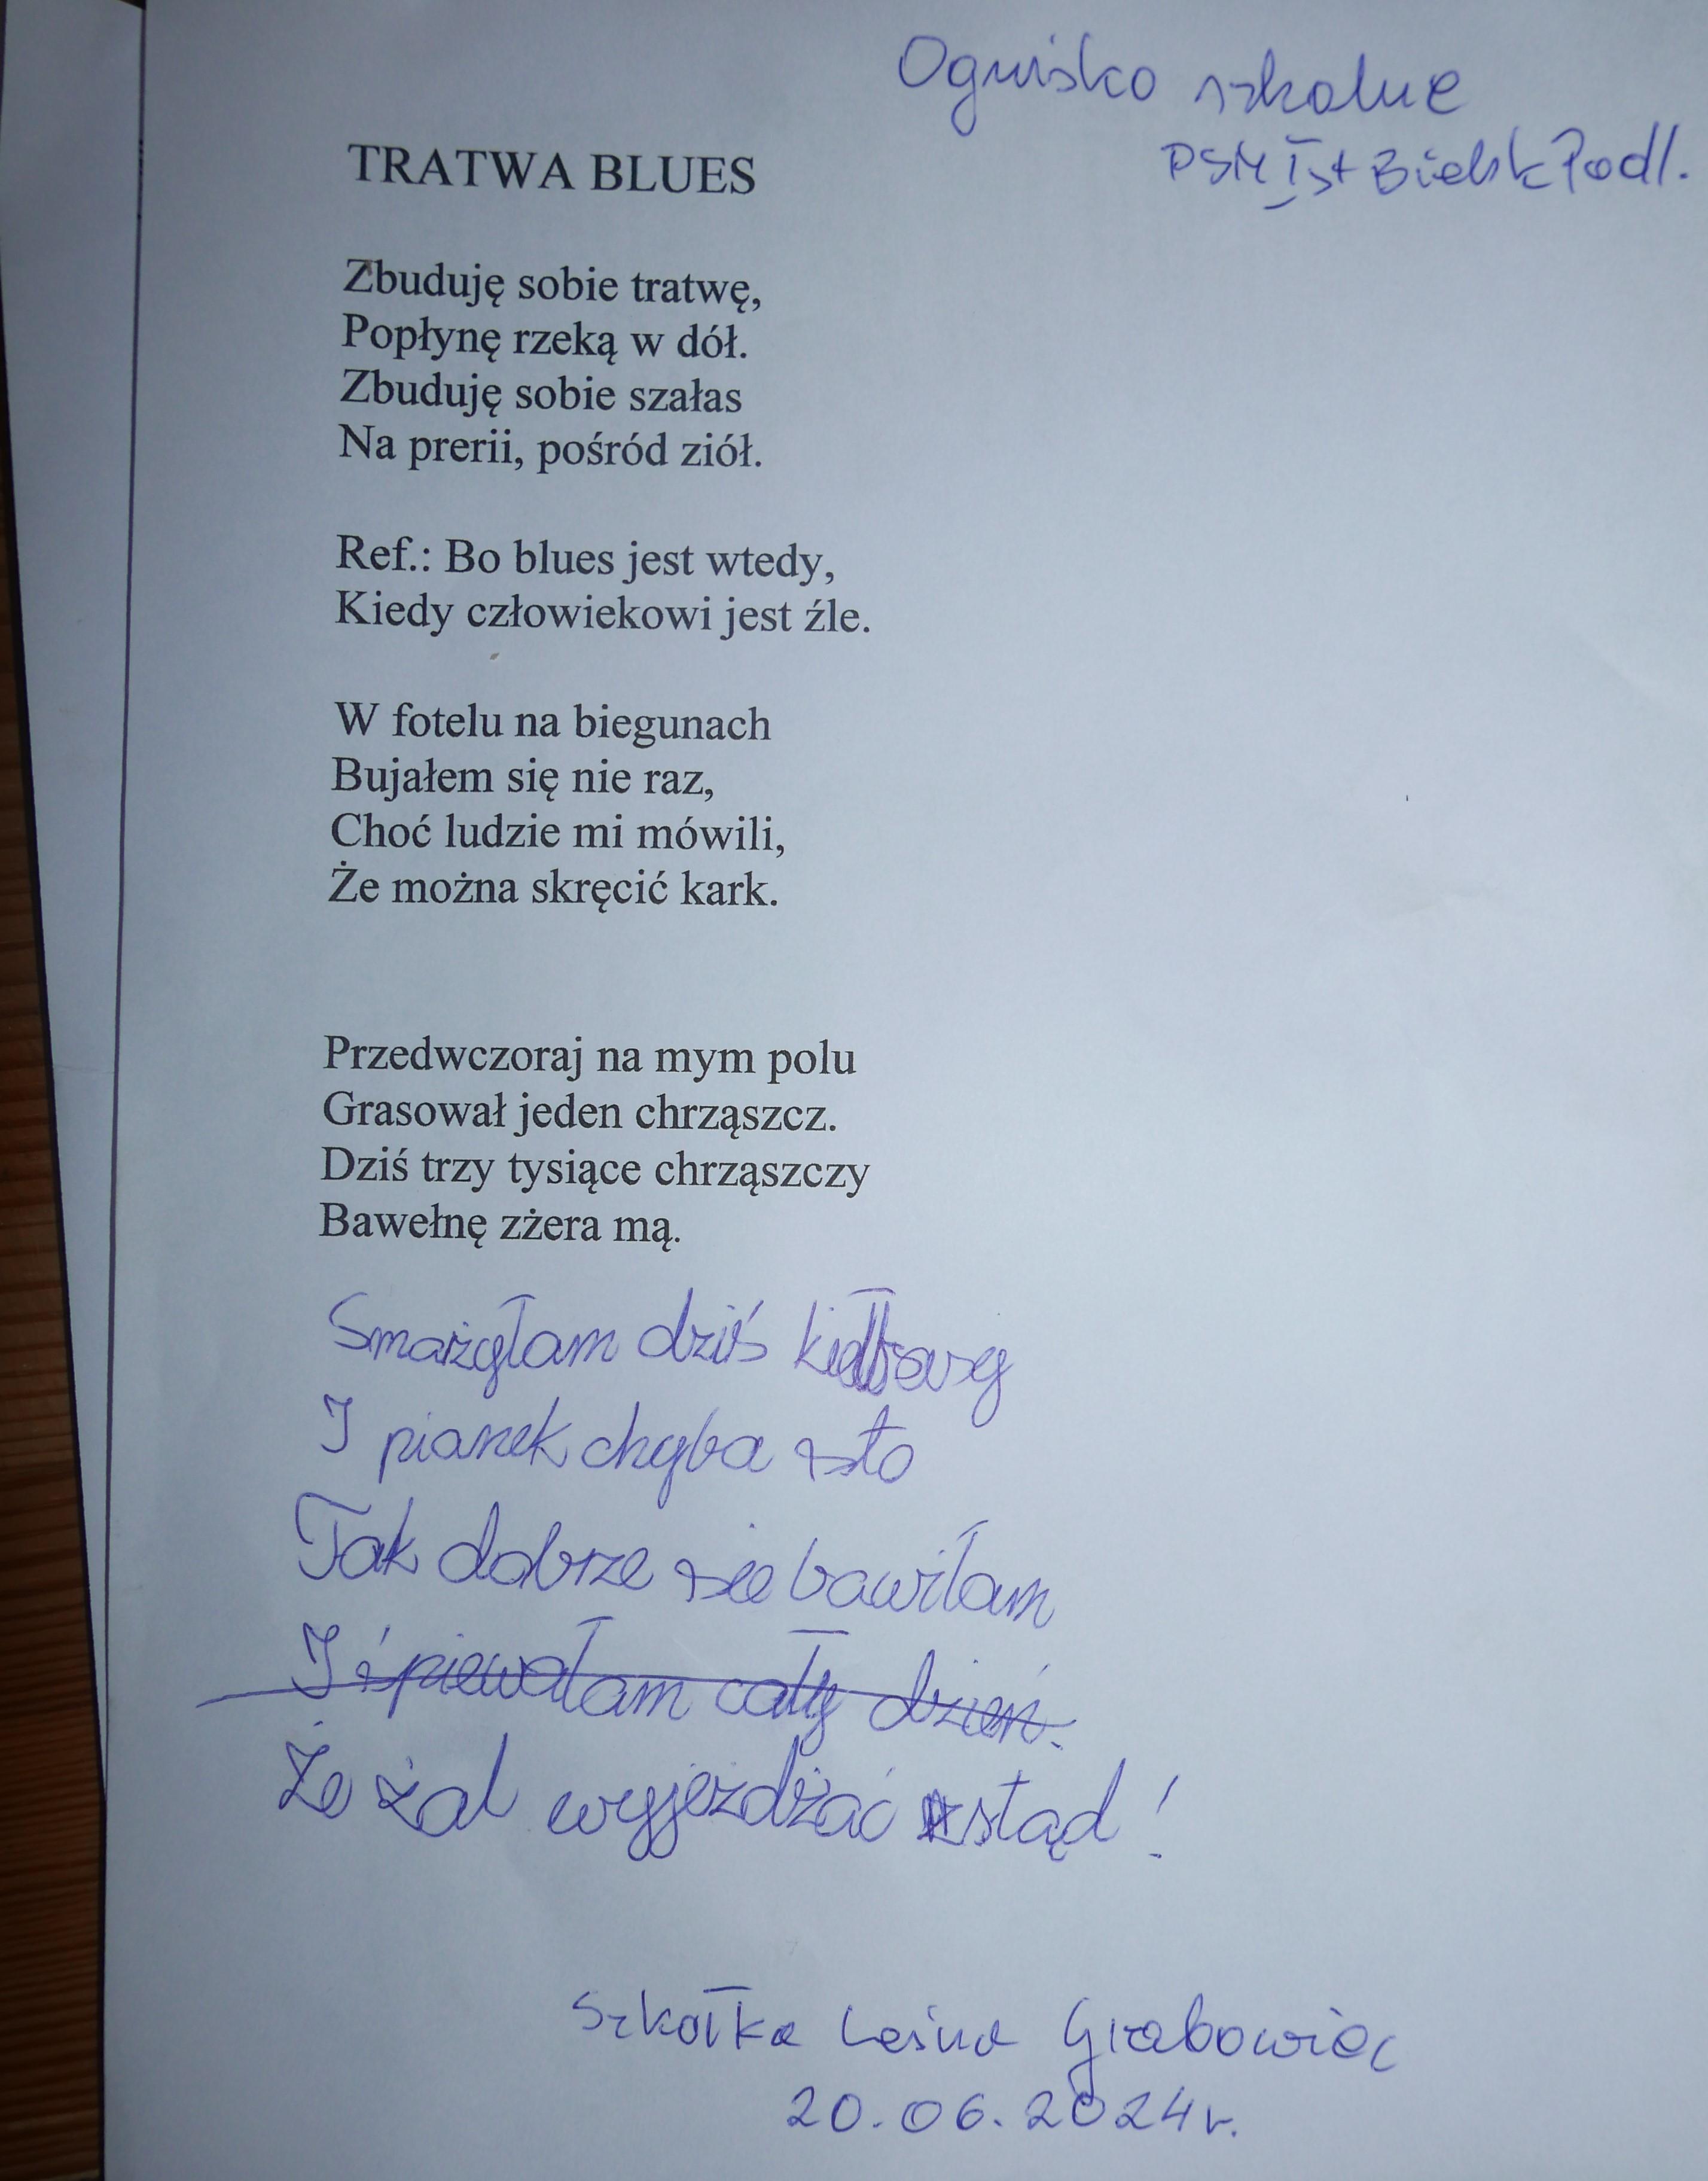 Ognisko szkolne
PSM I st Bielsk Podl.
TRATWA BLUES
Zbuduję sobie tratwę,
Popłynę rzeką w dół.
Zbuduję sobie szałas
Na prerii, pośród ziół.
Ref.: Bo blues jest wtedy,
Kiedy człowiekowi jest źle.
W fotelu na biegunach
Bujałem się nie raz,
Choć ludzie mi mówili,
Że można skręcić kark.
Przedwczoraj na mym polu
Grasował jeden chrząszcz.
Dziś trzy tysiące chrząszczy
Bawełnę zżera mą.
Smażyłam dziś kiełbasy
I pianek chyba sto
Tak dobrze się bawiłam
I śpiewałam cały dzień.
Że żal wyjeżdżać stąd!
Szkółka Leśna Grabowiec
20.06.2024r.